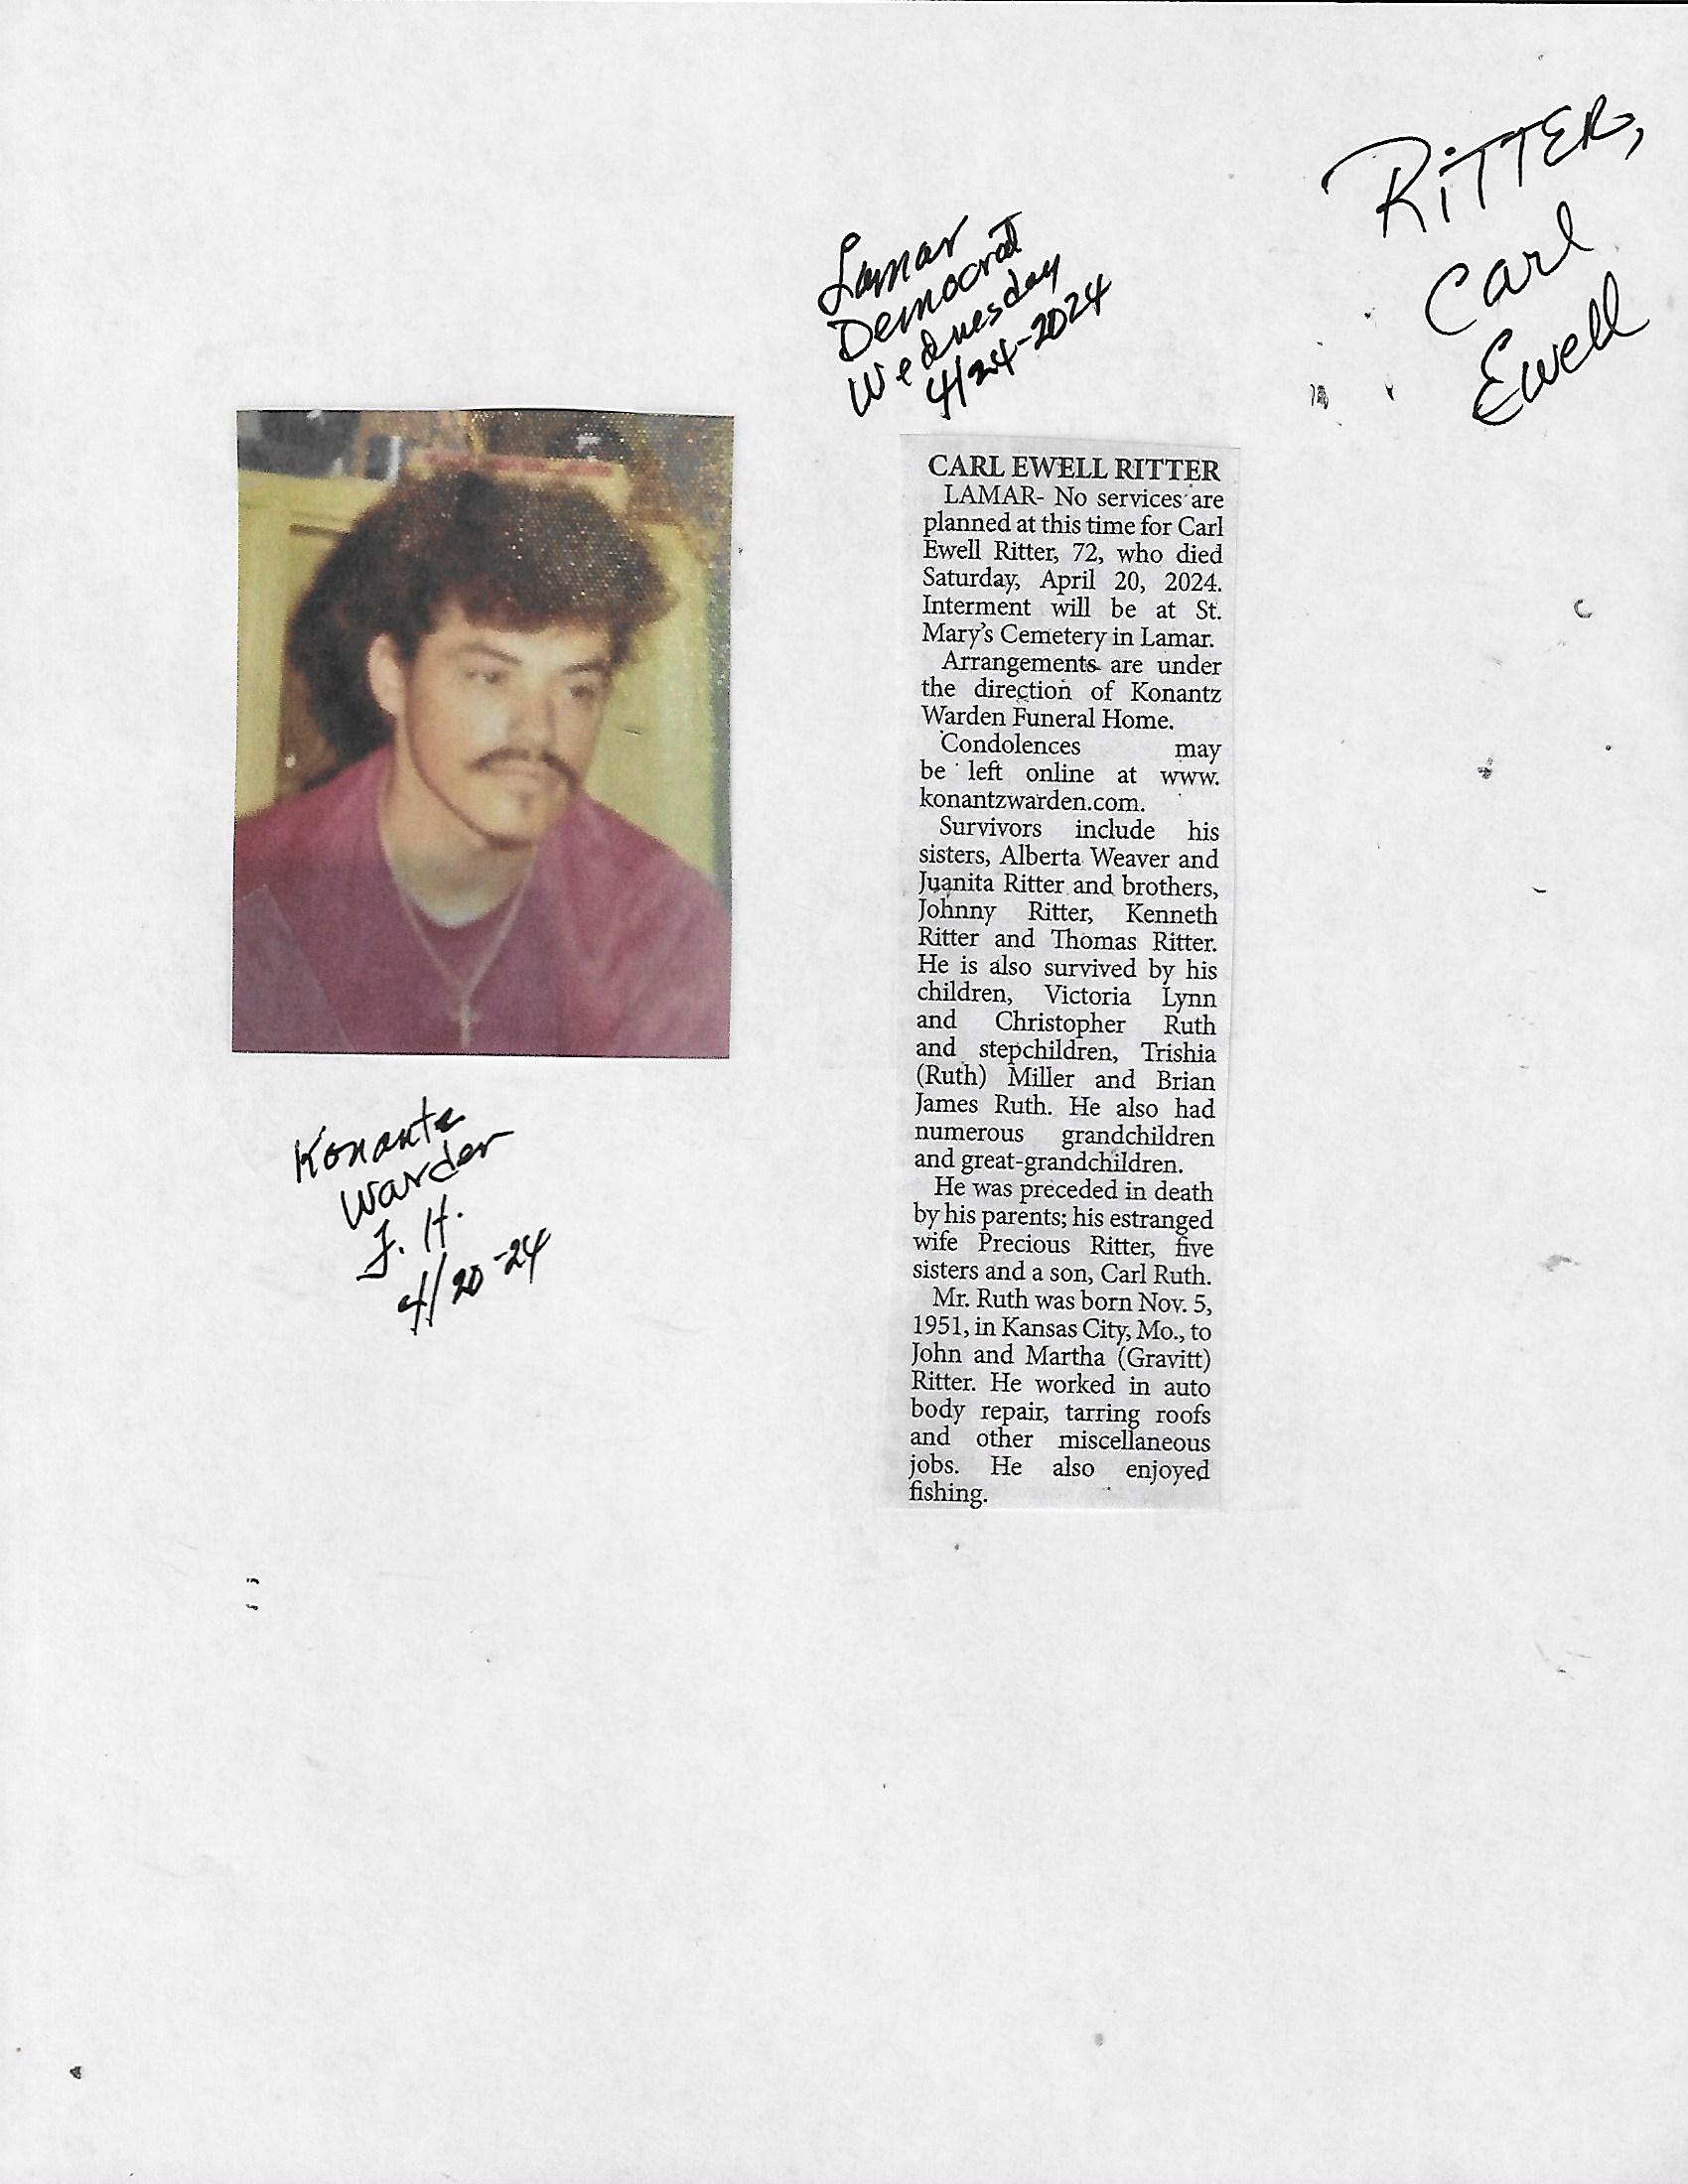 RITTER,
Carl
Ewell
Lamar
Democrat
Wednesday
4/24-2024
CARL EWELL RITTER
LAMAR- No services are
planned at this time for Carl
Ewell Ritter, 72, who died
Saturday, April 20, 2024.
Interment will be at St.
Mary's Cemetery in Lamar.
Arrangements are under
the direction of Konantz
Warden Funeral Home.
Condolences may
be left online at www.
konantzwarden.com.
Survivors include his
sisters, Alberta Weaver and
Juanita Ritter and brothers,
Johnny Ritter, Kenneth
Ritter and Thomas Ritter.
He is also survived by his
children, Victoria Lynn
and Christopher Ruth
and stepchildren, Trishia
(Ruth) Miller and Brian
James Ruth. He also had
numerous grandchildren
and great-grandchildren.
He was preceded in death
by his parents; his estranged
wife Precious Ritter, five
sisters and a son, Carl Ruth.
Mr. Ruth was born Nov. 5,
1951, in Kansas City, Mo., to
John and Martha (Gravitt)
Ritter. He worked in auto
body repair, tarring roofs
and other miscellaneous
jobs. He also enjoyed
fishing.
Konantz
Warden
F. H.
4/20-24